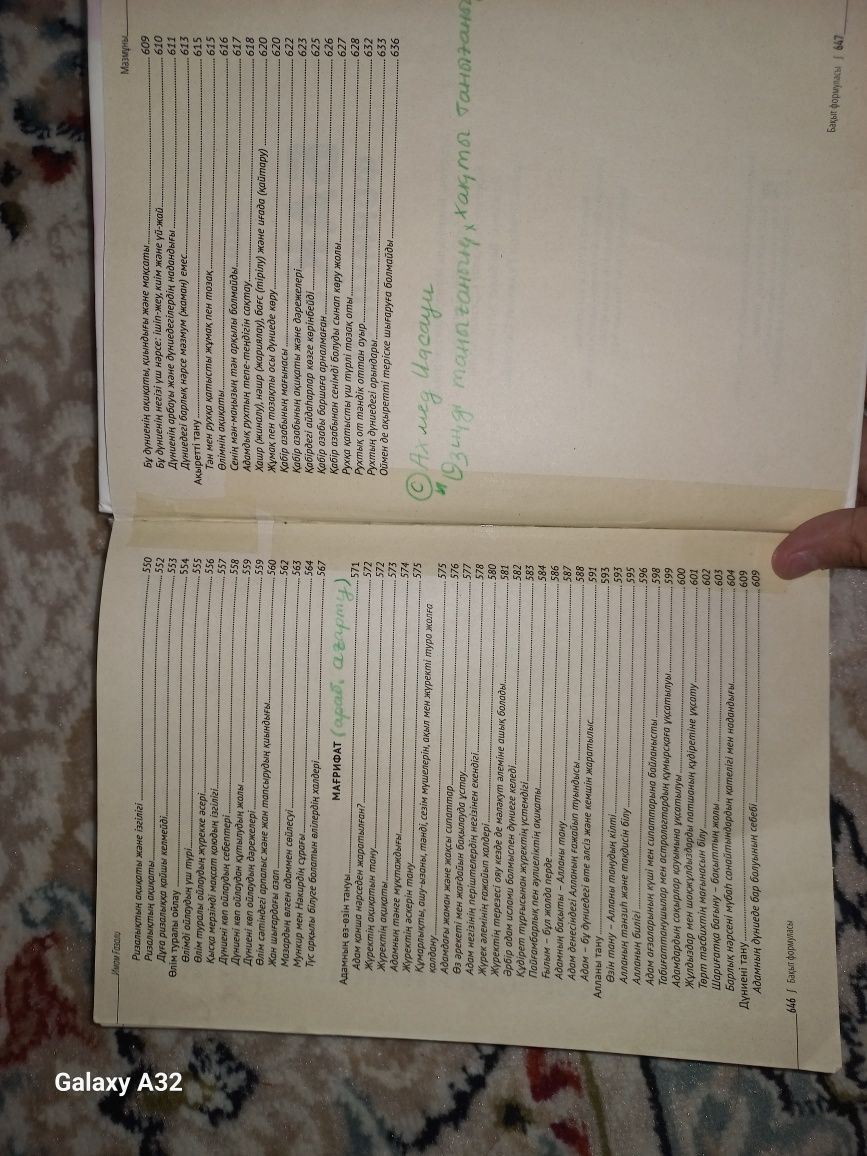 Имам Ғазали
Ризалықтың ақиқаты және ізгілігі 550
Ризалықтың ақиқаты 552
Дұға ризалыққа қайшы келмейді 553
Өлім туралы ойлау 554
Өлімді ойлаудың үш түрі 555
Өлім туралы ойлаудың жүрекке әсері 556
Қысқа мерзімді мақсат қоюдың ізгілігі 557
Дүниені көп ойлаудың себептері 558
Дүниені көп ойлаудан құтылудың жолы 559
Дүниені көп ойлаудың дәрежелері 559
Өлім сәтіндегі арпалыс және жан тапсырудың қиындығы 560
Жан шығардағы азап 562
Мазардың өлген адаммен сөйлесуі 563
Мункир мен Накирдің сұрағы 564
Түс арқылы білуге болатын өлілердің халдері 567
МАҒРИФАТ (араб. ағарту)
Адамның өз-өзін тануы 571
Адам қанша нәрседен жаратылған? 572
Жүректің ақиқатын тану 572
Жүректің ақиқаты 573
Адамның тәнге мұқтаждығы 574
Жүректің әскерін тану 575
Құмарлықты, ашу-ызаны, тәнді, сезім мүшелерін, ақыл мен жүректі тура жолға
қолдану 575
Адамдағы жаман және жақсы сипаттар 576
Өз әрекеті мен жағдайын бақылауда ұстау 577
Адам негізінің періштелердің негізінен екендігі 578
Жүрек әлемінің ғажайып халдері 580
Жүректің терезесі ояу кезде де малакут әлеміне ашық болады 581
Әрбір адам ислами болмыспен дүниеге келеді 582
Құдірет тұрғысынан жүректің үстемдігі 583
Пайғамбарлық пен әулиеліктің ақиқаты 584
Ғылым – бұл жолда перде 586
Адамның бақыты – Алланы тану 587
Адам денесіндегі Алланың ғажайып туындысы 588
Адам – бұ дүниедегі өте әлсіз және кемшін жаратылыс 591
Алланы тану 593
Өзін тану – Алланы танудың кілті 593
Алланың тәнзил және тақдисін білу 595
Алланың билігі 596
Адам ағзаларының күші мен сипаттарына байланысты 598
Табиғаттанушылар мен астрологтардың құмырсқаға ұқсатылуы 599
Адамдардың соқырлар қауымына ұқсатылуы 600
Жұлдыздар мен шоқжұлдыздарды патшаның құдіретіне ұқсату 601
Төрт тәсбихтің мағынасын білу 602
Шариғатқа бағыну – бақыттың жолы 603
Барлық нәрсені мүбаһ санайтындардың қателігі мен надандығы 604
Дүниені тану 609
Адамның дүниеде бар болуының себебі 609
646 | Бақыт формуласы
Мазмұны
Бұ дүниенің ақиқаты, қиындығы және мақсаты 609
Бұ дүниенің негізі үш нәрсе: ішіп-жеу, киім және үй-жай 610
Дүниенің арбауы және дүниедегілердің надандығы 611
Дүниедегі барлық нәрсе мазмум (жаман) емес 613
Ақыретті тану 615
Тән мен рухқа қатысты жұмақ пен тозақ 615
Өлімнің ақиқаты 616
Сенің мән-маңызың тән арқылы болмайды 617
Адамдық рухтың тепе-теңдігін сақтау 618
Хашр (жиналу), нәшр (жариялау), бағс (тірілу) және иғада (қайтару) 620
Жұмақ пен тозақты осы дүниеде көру 620
Қабір азабының мағынасы 622
Қабір азабының ақиқаты және дәрежелері 623
Қабірдегі айдаһарлар көзге көрінбейді 625
Қабір азабы баршаға арналмаған 626
Қабір азабынан сенімді болуды сынап көру жолы 627
Рухқа қатысты үш түрлі тозақ оты 628
Рухтық от тәндік оттан ауыр 632
Рухтың дүниедегі орындары 633
Оймен де ақыретті теріске шығаруға болмайды 636
© Ахмед Иасауи
Өзіңді танығаның, хақты танығаның
Бақыт формуласы | 647
Galaxy A32